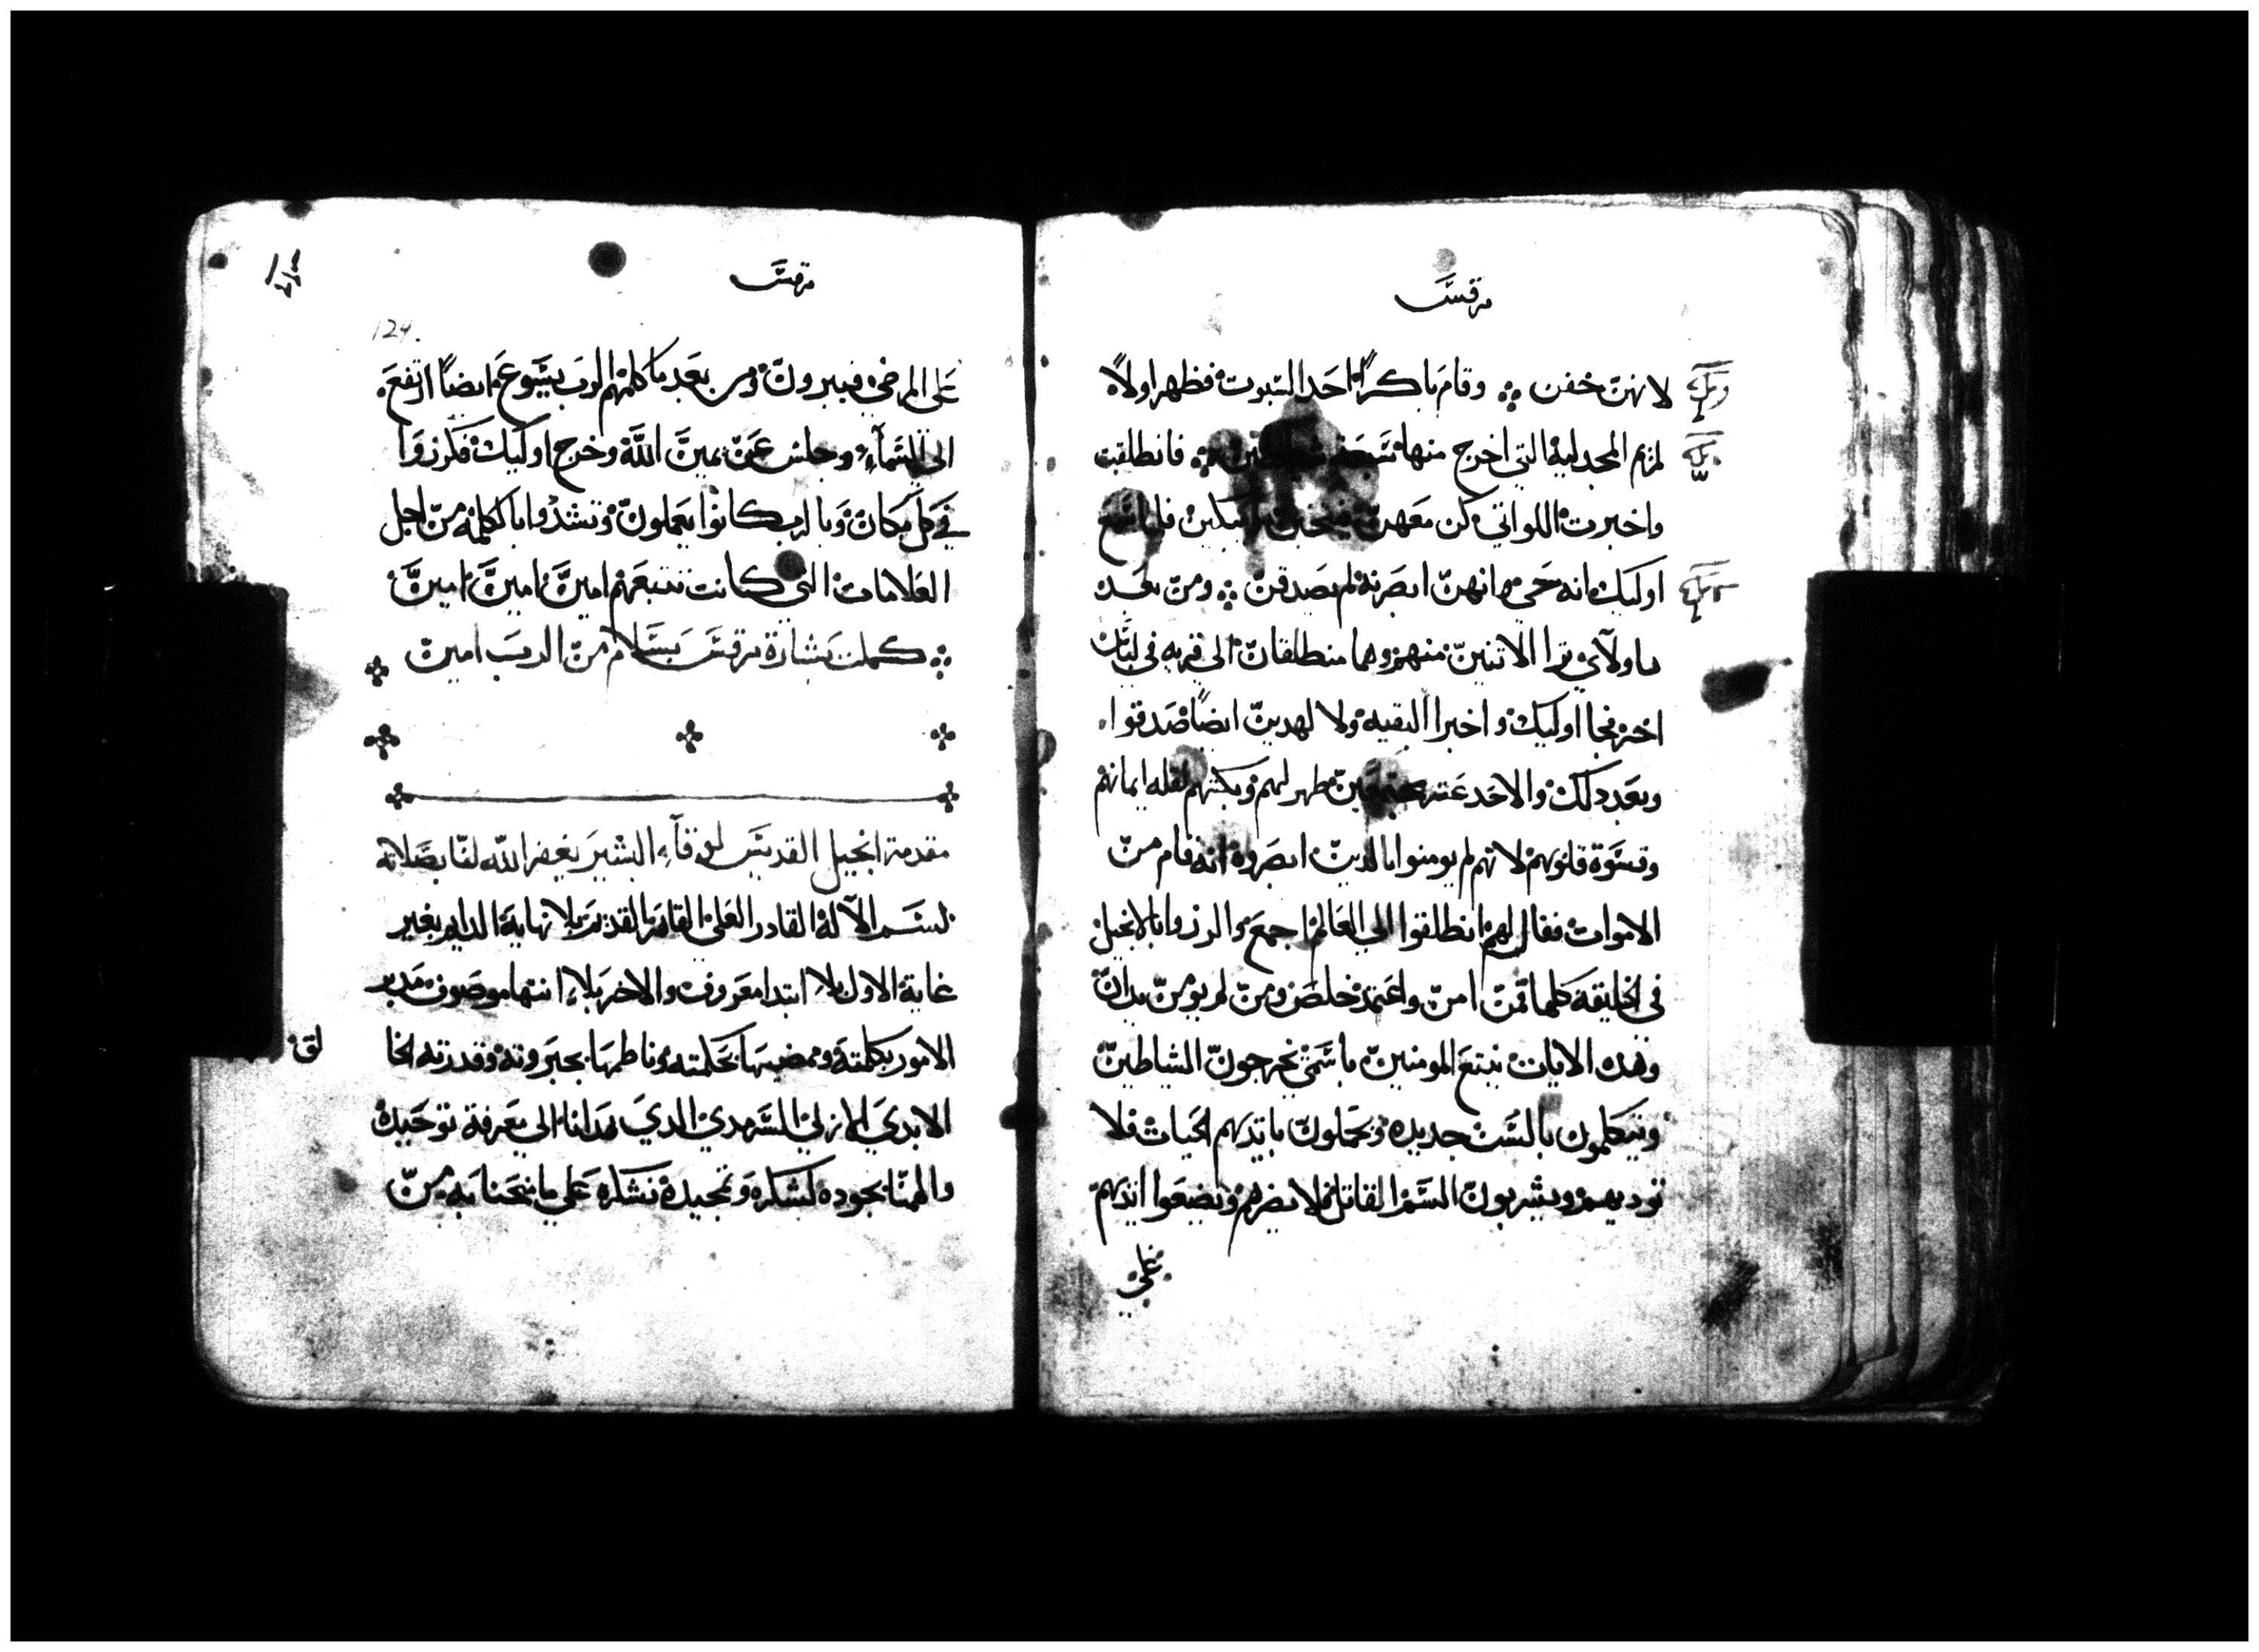 مرقس
لانهن خفن ፨ وقام باكرًا احد السبوت فظهر اولًا
لمريم المجدلية التي اخرج منها سبعة فانطلقت
واخبرت اللواتي كن معهن باكيين فلما سمع
اوليك انه حي وانهن ابصرنه لم يصدقن ፨ ومن بعد
تراا الاتنين منهم وهما منطلقان الى قريه في لباس
اخر فجا اوليك واخبرا البقيه ولا لهدين ايضًا صدقوا
وبعد دلك والاحد عشر ظهر لهم وبكتهم لقله ايمانهم
وقسوة قلوبهم لانهم لم يومنوا بالدين ابصروه انه قام من
الاموات فقال لهم انطلقوا الي العالم اجمع والرزوا بالانجيل
في الخليقه كلها فمن امن واعتمد خلص ومن لم يومن يدان
وهده الايات تتبع المومنين باسمي يخرجون الشياطين
ويتكلمون بالسن جديده ويحملون بايديهم الحيات فلا
توديهم ويشربون السم القاتل فلا يضرهم ويضيعوا ايديهم
علي
مرقس
124.
علي المرضي فيبرون ومن بعد ما كلمهم الرب يسوع ايضًا ارتفع
الي السمآء وجلس عن يمين الله وخرج اوليك فكرزوا
في كل مكان وبالرب كانوا يعملون وتشدوا بالكلمه من اجل
العلامات التي كانت تتبعهم امين امين امين
፨ كملت بشارة مرقس بسلام من الرب امين
مقدمة انجيل القديس لوقآء البشير يغفر الله لنا بصلاته
بسم الآله القادر العلي القاهر القديم بلا نهاية الدايم بغير
غاية الاول بلا ابتدا معروف والاخر بلا انتها موصوف مدبر
الامور بكلمته وممضيها بحكمته وناظمها بجبروته وقدرته الحا
لق
الابدي الازلي السرمدي الدي هدانا الي معرفة توحيده
والهمنا بجوده لشكره وتمجيده نشكره علي ما منحنا به من